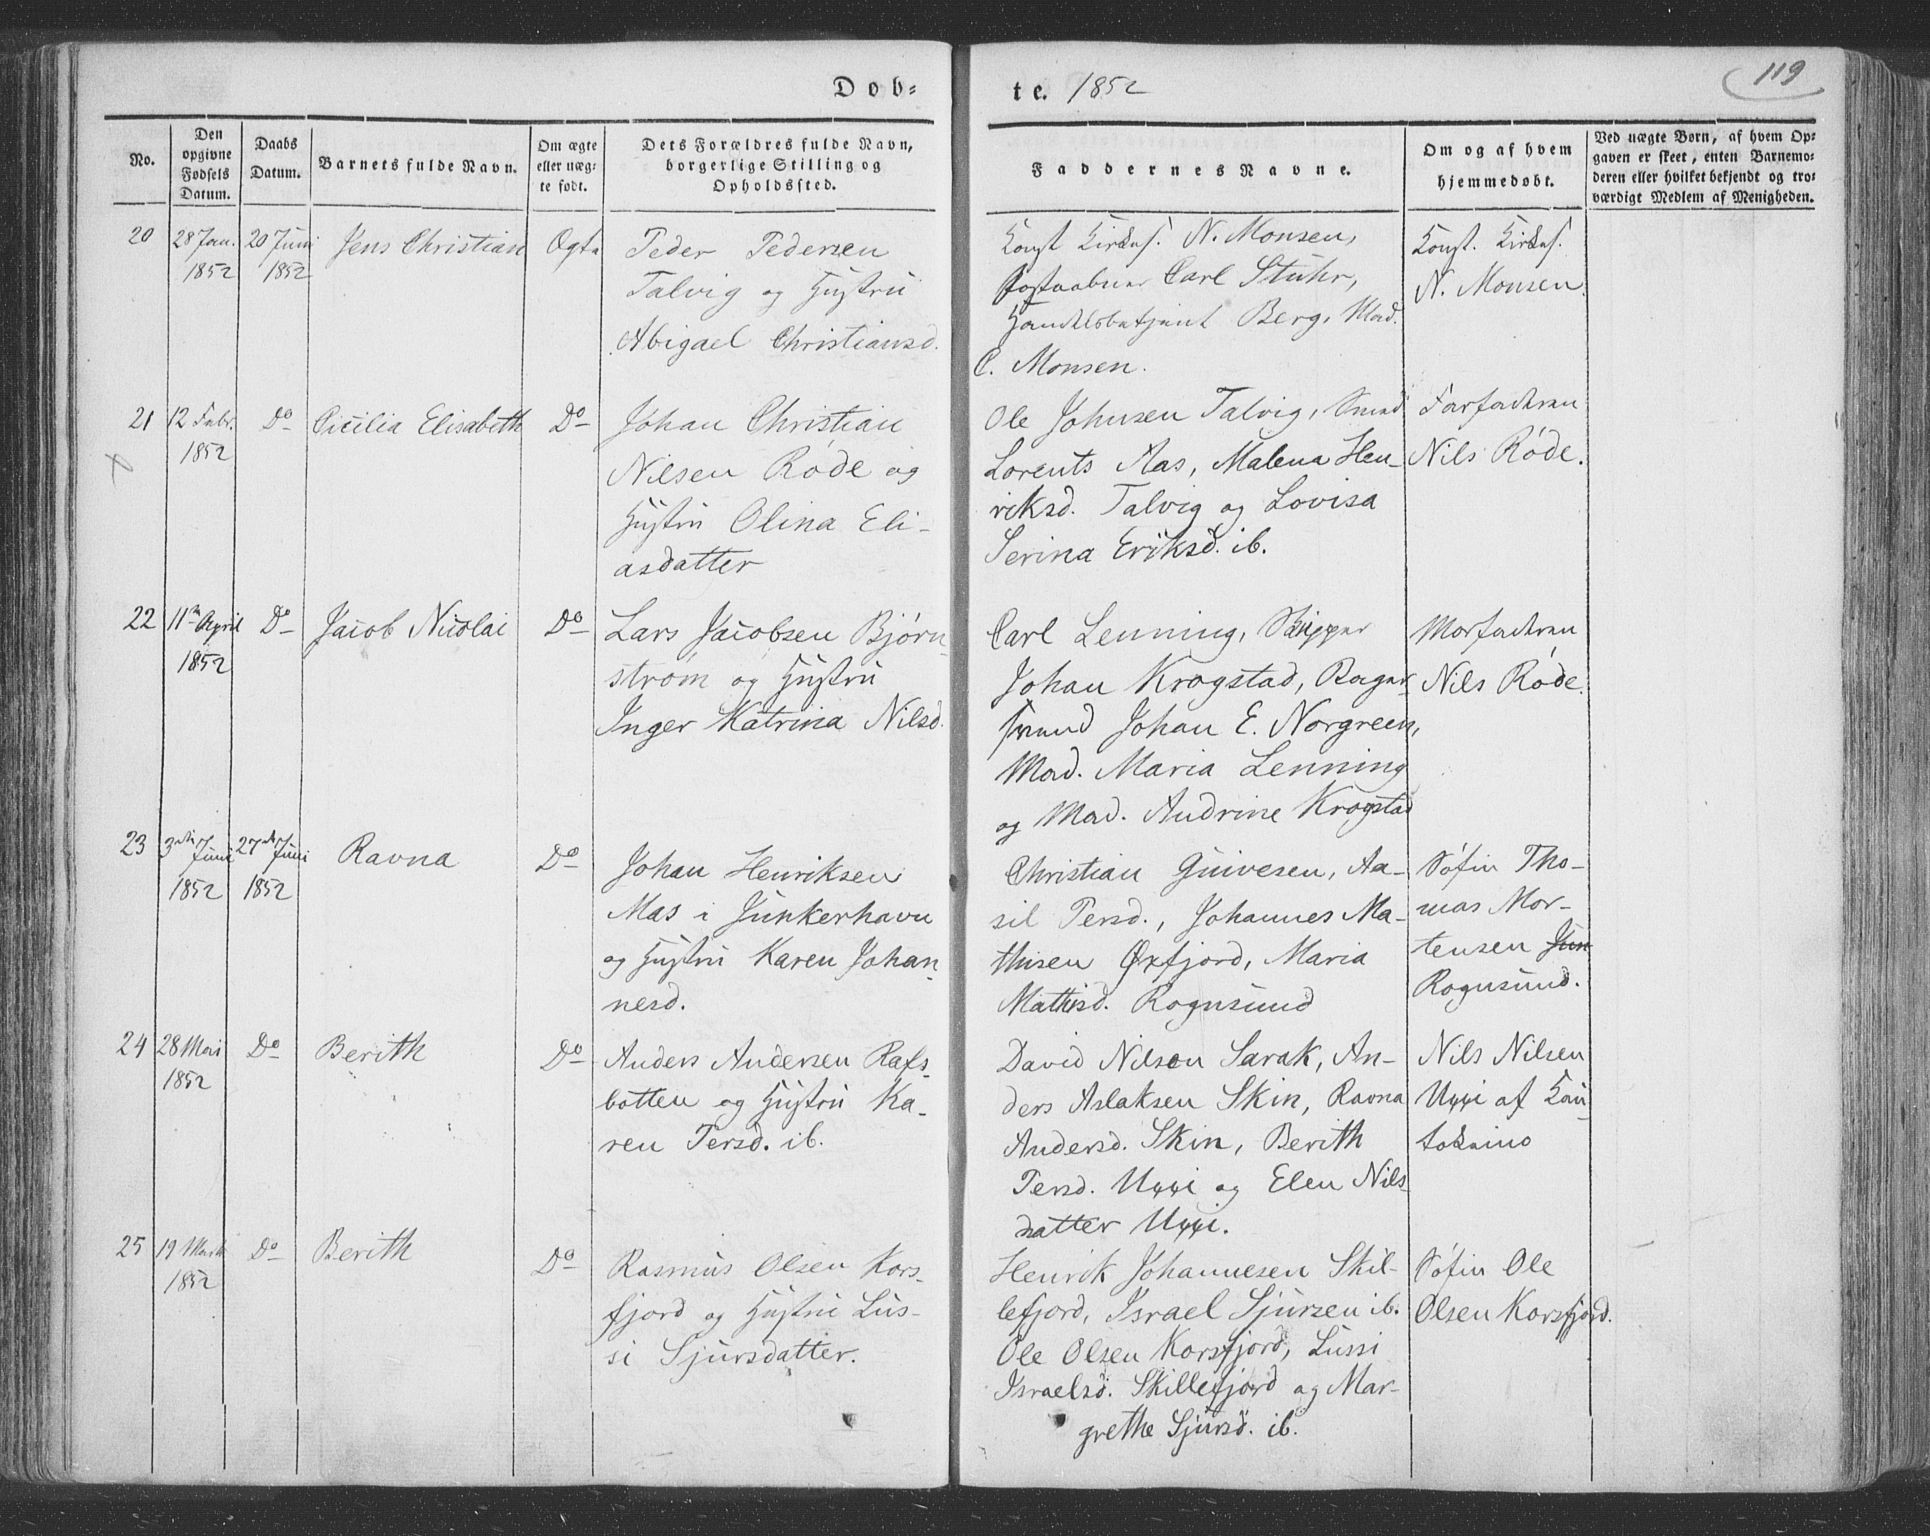 Dob-
te. 1852
119
No.
Den opgivne Fødsels Datum.
Daabs Datum.
Barnets fulde Navn.
Om ægte eller uæg-te født.
Dets Forældres fulde Navn, borgerlige Stilling og Opholdssted.
Faddernes Navne.
Om og af hvem hjemmedøbt.
Ved uægte Børn, af hvem Op-
gaven er skeet, enten Barnemo-
deren eller hvilket bekjendt og tro-
værdigt Medlem af Menigheden.
20
28 Jan.
1852
20 Juni
1852
Jens Christian
Ægte
Peder Pedersen
Talvig og Hustru
Abigael Christiansd.
Const Kirkes. N. Monsen,
Postaabner Carl Stuhr,
Handelsbetjent Berg, Mad.
C. Monsen.
Const. Kirkes.
N. Monsen.
21
12 Febr.
1852
Do
Cicilia Elisabeth
Do
Johan Christian
Nilsen Røde og
Hustru Olina Eli-
asdatter
Ole Johnsen Talvig, Smed
Lorents Aas, Malena Hen-
riksd. Talvig og Lovisa
Serina Eriksd. ib.
Farfaderen
Nils Røde.
22
11te April
1852
Do
Jacob Nicolai
Do
Lars Jacobsen Bjørn-
strøm og Hustru
Inger Katrina Nilsd.
Carl Lenning, Skipper
Johan Krogstad, Bager
svend Johan E. Norgreen,
Mad. Maria Lenning
og Mad. Andrine Krogstad
Morfaderen
Nils Røde.
23
3die Juni
1852
27de Juni
1852
Ravna
Do
Johan Henriksen
Mas i Junkerhavn
og Hustru Karen Johan-
nesd.
Christian Guivesen, Aa-
sil Persd., Johannes Ma-
thisen Øxfjord, Maria
Mathisd. Rognsund
Søfin Tho-
mas Mor-
tensen Jun
Rognsund.
24
28 Mai
1852
Do
Berith
Do
Anders Andersen Rafs-
botten og Hustru Ka-
ren Persd. ib.
David Nilsen Sarak, An-
ders Aslaksen Skin, Ravna
Andersd. Skin, Berith
Persd. Uxxi og Elen Nils-
datter Uxxi.
Nils Nilsen
Uxxi af Kau-
tokeino
25
19 Marts
1852
Do
Berith
Do
Rasmus Olsen Kors-
fjord og Hustru Lus-
si Sjursdatter.
Henrik Johannesen Skil-
lefjord, Israel Sjursen ib.
Ole Olsen Korsfjord, Lussi
Israelsd. Skillefjord og Mar-
grethe Sjursd. ib.
Søfin Ole
Olsen Korsfjord.